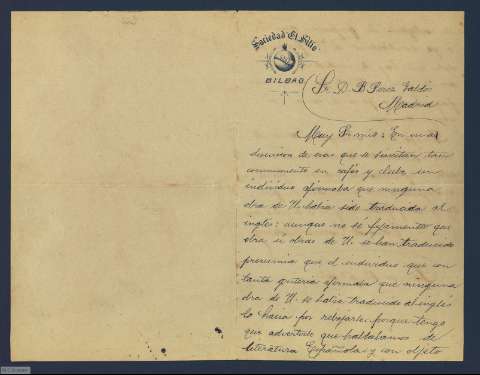 Sociedad "El Sitio"
BILBAO
Sr. D. B. Perez Galdós
Madrid
Muy Sr. mio: En una
discusion de esas que se suscitan tan
comunmente en cafés y clubs un
individuo afirmaba que ninguna
obra de V. habia sido traducida al
inglés: aunque no sé fijamente que
obra ú obras de V. se han traducido
presumia que el individuo que con
tanta griteria afirmaba que ninguna
obra de V. se habia traducido al inglés
lo hacia por rebajarle porque tengo
que advertirle que hablábamos de
literatura Española y con objeto